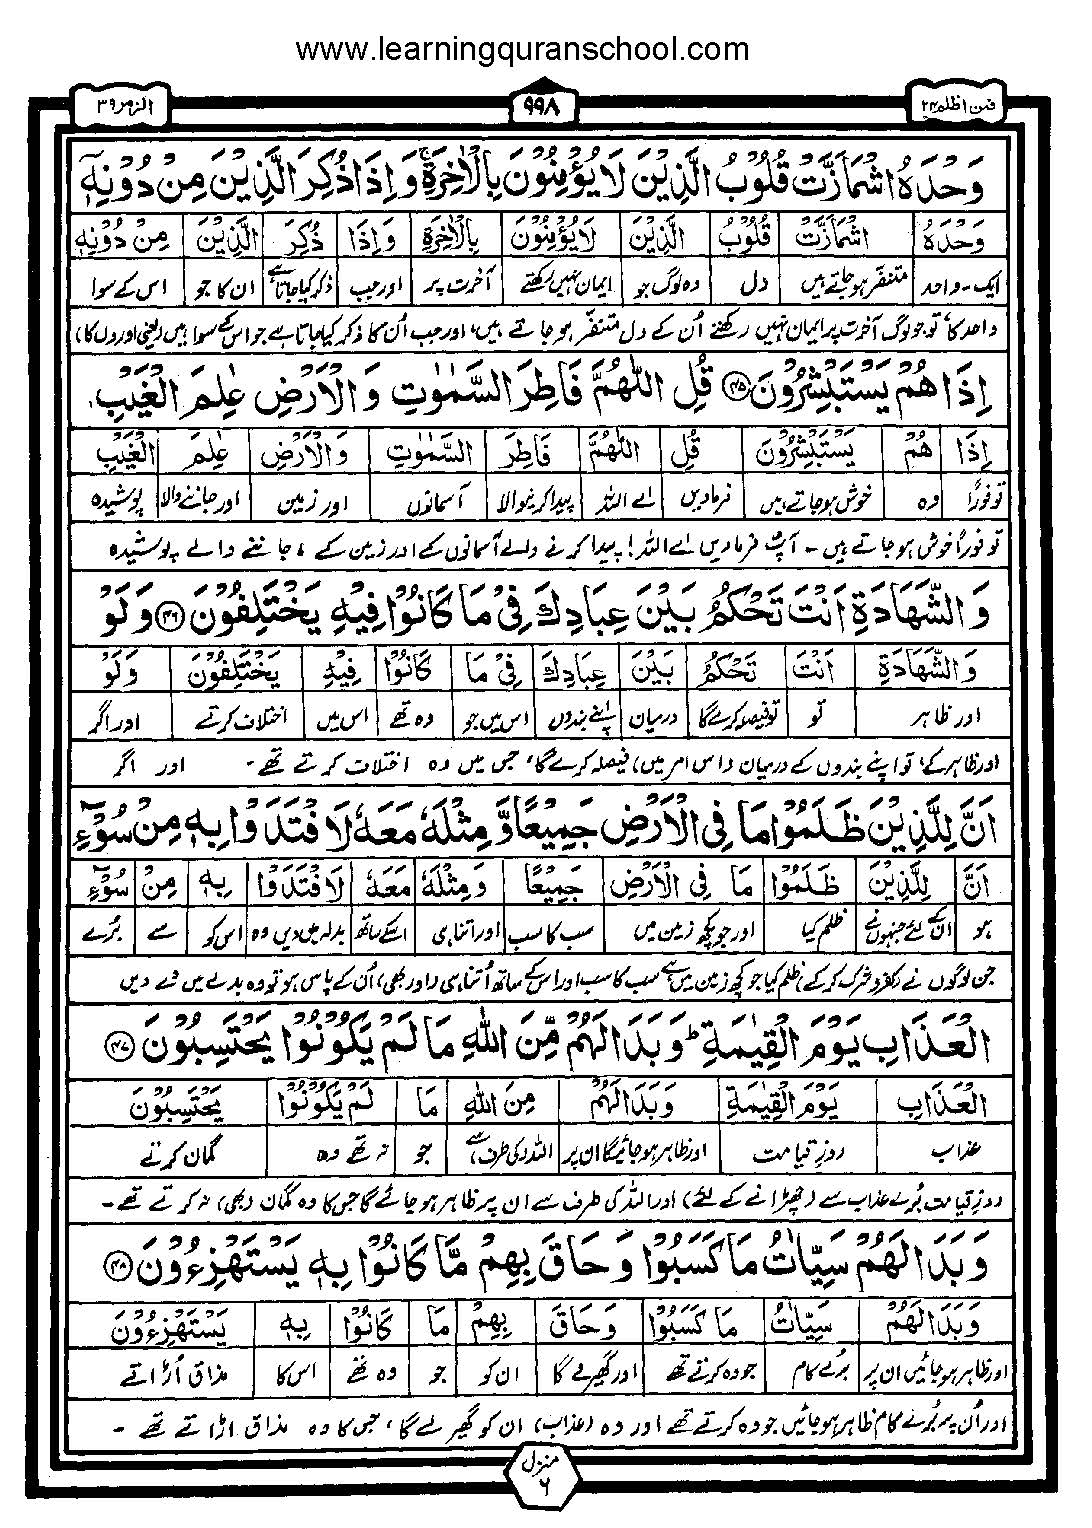 www.learningquranschool.com
الزمر ٣٩
٩٩٨
فمن اظلم ٢٤
وَحْدَهُ اشْمَاَزَّتْ قُلُوْبُ الَّذِيْنَ لَا يُؤْمِنُوْنَ بِالْاٰخِرَةِ ۚ وَاِذَا ذُكِرَ الَّذِيْنَ مِنْ دُوْنِهٖٓ
وَحْدَهُ اشْمَاَزَّتْ قُلُوْبُ الَّذِيْنَ لَا يُؤْمِنُوْنَ بِالْاٰخِرَةِ وَاِذَا ذُكِرَ الَّذِيْنَ مِنْ دُوْنِهٖٓ
ایک - واحد متنفر ہوجاتے ہیں دل وہ لوگ جو ایمان نہیں رکھتے آخرت پر اور جب ذکر کیا جاتا ہے ان کا جو اس کے سوا
واحد کا، تو جو لوگ آخرت پر ایمان نہیں رکھتے اُن کے دل متنفر ہو جاتے ہیں، اور جب اُن کا ذکر کیا جاتا ہے جو اس کے سوا ہیں (یعنی اوروں کا)
اِذَا هُمْ يَسْتَبْشِرُوْنَ ﴿٤٥﴾ قُلِ اللّٰهُمَّ فَاطِرَ السَّمٰوٰتِ وَالْاَرْضِ عٰلِمَ الْغَيْبِ
اِذَا هُمْ يَسْتَبْشِرُوْنَ قُلِ اللّٰهُمَّ فَاطِرَ السَّمٰوٰتِ وَالْاَرْضِ عٰلِمَ الْغَيْبِ
تو فورًا وہ خوش ہوجاتے ہیں فرمادیں اے اللہ پیدا کرنیوالا آسمانوں اور زمین اور جاننے والا پوشیدہ
تو فورًا خوش ہو جاتے ہیں - آپ فرمادیں اے اللہ! پیدا کرنے والے آسمانوں کے اور زمین کے، جاننے والے پوشیدہ
وَالشَّهَادَةِ اَنْتَ تَحْكُمُ بَيْنَ عِبَادِكَ فِيْ مَا كَانُوْا فِيْهِ يَخْتَلِفُوْنَ ﴿٤٦﴾ وَلَوْ
وَالشَّهَادَةِ اَنْتَ تَحْكُمُ بَيْنَ عِبَادِكَ فِيْ مَا كَانُوْا فِيْهِ يَخْتَلِفُوْنَ وَلَوْ
اور ظاہر تو تو فیصلہ کرے گا درمیان اپنے بندوں اس میں جو وہ تھے اس میں اختلاف کرتے اور اگر
اور ظاہر کے، تو اپنے بندوں کے درمیان (اس امر میں) فیصلہ کرے گا، جس میں وہ اختلاف کرتے تھے - اور اگر
اَنَّ لِلَّذِيْنَ ظَلَمُوْا مَا فِي الْاَرْضِ جَمِيْعًا وَّمِثْلَهٗ مَعَهٗ لَافْتَدَوْا بِهٖ مِنْ سُوْٓءِ
اَنَّ لِلَّذِيْنَ ظَلَمُوْا مَا فِي الْاَرْضِ جَمِيْعًا وَمِثْلَهٗ مَعَهٗ لَافْتَدَوْا بِهٖ مِنْ سُوْٓءِ
ہو ان کے لئے جنہوں نے ظلم کیا اور جو کچھ زمین میں سب کا سب اور اتنا ہی اسکے ساتھ بدلہ میں دیں وہ اس کو سے بُرے
جن لوگوں نے (کفر و شرک کر کے) ظلم کیا جو کچھ زمین میں ہے سب کا سب اور اس کے ساتھ اُتنا ہی (اور بھی) اُن کے پاس ہو تو وہ بدلے میں دے دیں
الْعَذَابِ يَوْمَ الْقِيٰمَةِ ؕ وَبَدَا لَهُمْ مِّنَ اللّٰهِ مَا لَمْ يَكُوْنُوْا يَحْتَسِبُوْنَ ﴿٤٧﴾
الْعَذَابِ يَوْمَ الْقِيٰمَةِ وَبَدَا لَهُمْ مِنَ اللّٰهِ مَا لَمْ يَكُوْنُوْا يَحْتَسِبُوْنَ
عذاب روزِ قیامت اور ظاہر ہوجائیگا ان پر اللہ کی طرف سے جو نہ تھے وہ گمان کرتے
روزِ قیامت بُرے عذاب سے (چھڑانے کے لئے) اور اللہ کی طرف سے ان پر ظاہر ہو جائے گا جس کا وہ گمان (بھی) نہ کرتے تھے -
وَبَدَا لَهُمْ سَيِّاٰتُ مَا كَسَبُوْا وَحَاقَ بِهِمْ مَّا كَانُوْا بِهٖ يَسْتَهْزِءُوْنَ ﴿٤٨﴾
وَبَدَا لَهُمْ سَيِّاٰتُ مَا كَسَبُوْا وَحَاقَ بِهِمْ مَا كَانُوْا بِهٖ يَسْتَهْزِءُوْنَ
اور ظاہر ہوجائیں ان پر بُرے کام جو وہ کرتے تھے اور گھیرے گا ان کو جو وہ تھے اس کا مذاق اُڑاتے
اور اُن پر بُرے کام ظاہر ہو جائیں جو وہ کرتے تھے اور وہ (عذاب) ان کو گھیر لے گا، جس کا وہ مذاق اڑاتے تھے -
منزل
٦